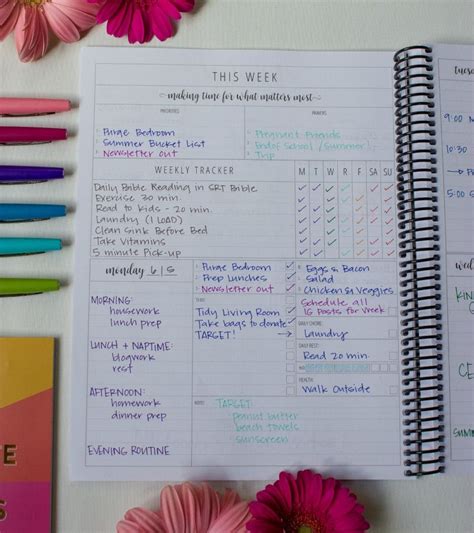 THIS WEEK
making time for what matters most
PRIORITIES
PRAYERS
Purge Bedroom
Summer Bucket List
Newsletter out
Pregnant Friends
End of School/Summer
Trip
WEEKLY TRACKER
M T W R F SA SU
Daily Bible Reading in SRT Bible
Exercise 30 min.
Read to kids - 20 min.
Laundry (1 LOAD)
Clean Sink Before Bed
Take Vitamins
5 minute Pick-up
monday 6/5
MORNING:
housework
lunch prep
LUNCH + NAPTIME:
blogwork
rest
AFTERNOON:
homework
dinner prep
EVENING ROUTINE
Purge Bedroom
Prep Lunches
Newsletter out
Tidy Living Room
Take bags to donate
TARGET!
Eggs & Bacon
Salad
Chicken & Veggies
Schedule all
16 Posts for Week
DAILY CHORE
Laundry
Read 20 min.
HEALTH
Walk Outside
NOTES
TARGET:
peanut butter
beach towels
sunscreen
tues
9:00
wed